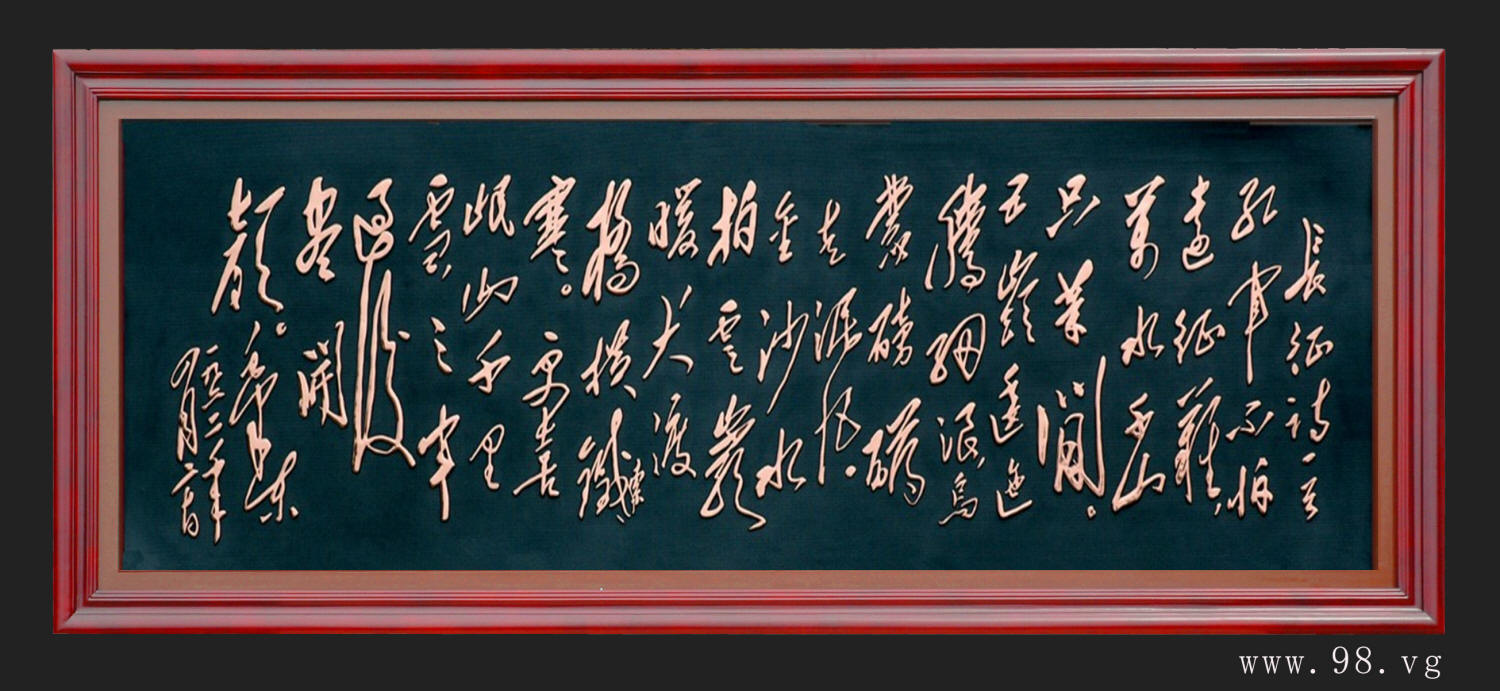 長征詩一首
紅軍不怕
遠征難，
萬水千山
只等閒。
五嶺逶迤
騰細浪，烏
蒙磅礴
走泥丸。
金沙水
拍雲崖
暖，大渡
橋橫鐵索
寒。更喜
岷山千里
雪，三軍
過後
盡開
顏。毛澤東
一九六二年
四月廿日
www.98.vg